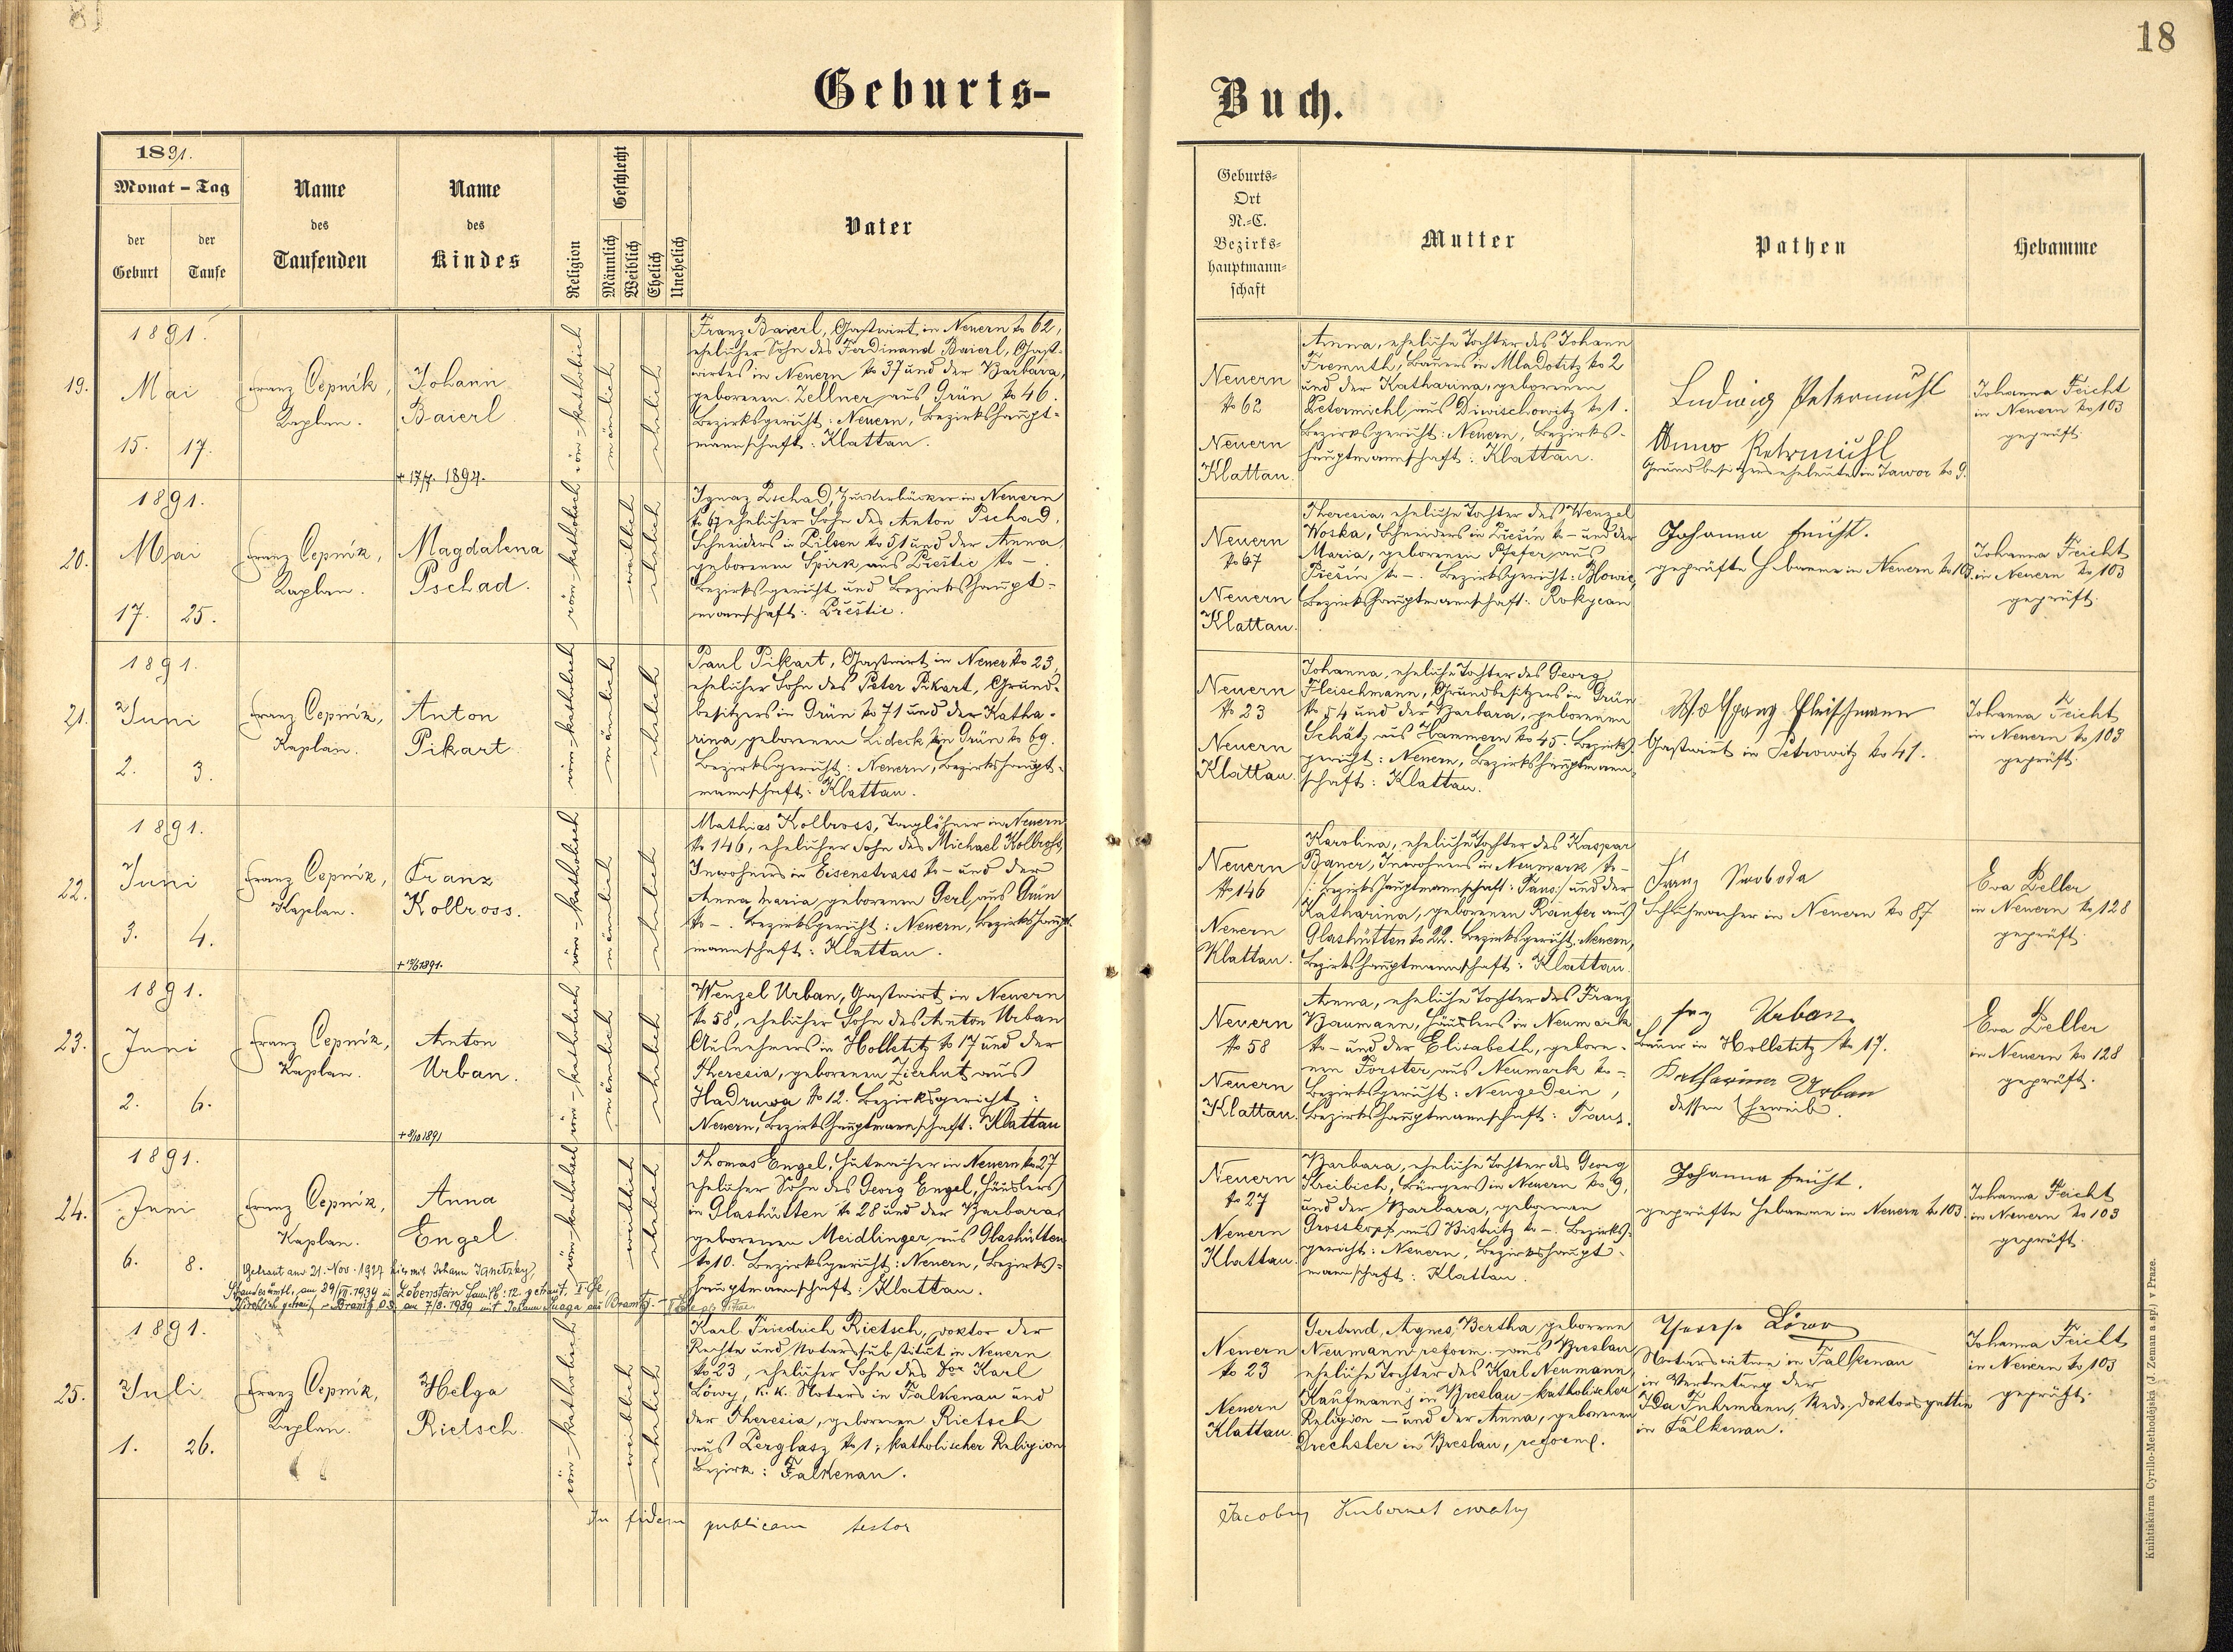 18
Geburts-
Buch.
1891.
Monat - Tag
der Geburt
der Taufe
Name des Taufenden
Name des Kindes
Religion
Geschlecht
Männlich
Weiblich
Ehelich
Unehelich
Vater
Geburts-
Ort
N.-C.
Bezirks-
hauptmann-
schaft
Mutter
Pathen
Hebamme
19.
1891.
Mai
15. 17.
Franz Čepnik,
Kaplan.
Johann
Baierl
† 17/7. 1894.
röm-katholisch
männlich
ehelich
Franz Baierl, Gastwirt in Neuern No 62,
ehelicher Sohn des Ferdinand Baierl, Gast-
wirtes in Neuern No 37 und der Barbara,
geborenen Zellner aus Grün No 46.
Bezirksgericht: Neuern, Bezirkshaupt-
mannschaft: Klattau.
Neuern
No 62
Neuern
Klattau.
Anna, eheliche Tochter des Johann
Fremuth, Bauers in Mladotitz No 2
und der Katharina, geborenen
Petermichl aus Diwischowitz No 1.
Bezirksgericht: Neuern, Bezirks-
hauptmannschaft: Klattau.
Ludwig Petermichl
Anna Petermichl
Grundbesitzerseheleute in Jawor No 9.
Johanna Feicht
in Neuern No 103
geprüft.
20.
1891.
Mai
17. 25.
Franz Čepnik,
Kaplan.
Magdalena
Pschad.
röm-katholisch
weiblich
ehelich
Ignaz Pschad, Zuckerbäcker in Neuern
No 67 ehelicher Sohn des Anton Pschad,
Schneiders in Pilsen No 51 und der Anna,
geborenen Spirk aus Přestic No -.
Bezirksgericht und Bezirkshaupt-
mannschaft: Přestic.
Neuern
No 67
Neuern
Klattau.
Theresia, eheliche Tochter des Wenzel
Woska, Schneiders in Piešin No - und der
Maria, geborenen Pfefer aus
Piešin No -. Bezirksgericht: Blowic,
Bezirkshauptmannschaft: Rokycan
Johanna Feicht.
geprüfte Hebamme in Neuern No 103.
Johanna Feicht
in Neuern No 103
geprüft.
21.
1891.
Juni
2. 3.
Franz Čepnik,
Kaplan.
Anton
Pikart
röm-katholisch
männlich
ehelich
Paul Pikart, Gastwirt in Neuer No 23,
ehelicher Sohn des Peter Pikart, Grund-
besitzers in Grün No 71 und der Katha-
rina geborenen Lideck in Grün No 69.
Bezirksgericht: Neuern, Bezirkshaupt-
mannschaft: Klattau.
Neuern
No 23
Neuern
Klattau.
Johanna, eheliche Tochter des Georg
Fleischmann, Grundbesitzers in Grün
No 54 und der Barbara, geborenen
Schätz aus Hammern No 45. Bezirks-
gericht: Neuern, Bezirkshauptmann-
schaft: Klattau.
Wolfgang Fleischmann
Gastwirt in Petrowitz No 41.
Johanna Feicht
in Neuern No 103
geprüft.
22.
1891.
Juni
3. 4.
Franz Čepnik,
Kaplan.
Franz
Kollross.
röm-katholisch
männlich
ehelich
Mathias Kollross, Taglöhner in Neuern
No 146, ehelicher Sohn des Michael Kollross,
Inwohners in Eisenstrass No - und der
Anna Maria geborenen Gerl aus Grün
No -. Bezirksgericht: Neuern, Bezirkshaupt-
mannschaft: Klattau.
Neuern
No 146
Neuern
Klattau.
Karolina, eheliche Tochter des Kaspar
Bauer, Inwohners in Neumark No -
/: Bezirkshauptmannschaft: Taus:/ und der
Katharina, geborenen Ranfer aus
Glashütten No 22. Bezirksgericht: Neuern,
Bezirkshauptmannschaft: Klattau.
Franz Swoboda
Schuhmacher in Neuern No 87
Eva Zeller
in Neuern No 128
geprüft.
23.
1891.
Juni
2. 6.
Franz Čepnik,
Kaplan.
Anton
Urban.
† 8/10 1891
röm-katholisch
männlich
ehelich
Wenzel Urban, Gastwirt in Neuern
No 58, ehelicher Sohn des Anton Urban
Ausnehmers in Holletitz No 17 und der
Theresia, geborenen Zierhut aus
Hadruwa No 12. Bezirksgericht:
Neuern, Bezirkshauptmannschaft: Klattau
Neuern
No 58
Neuern
Klattau.
Anna, eheliche Tochter des Franz
Baumann, Häuslers in Neumark
No - und der Elisabeth, gebore-
nen Forster aus Neumark No -
Bezirksgericht: Neugedein,
Bezirkshauptmannschaft: Taus.
Urban
Bauer in Holletitz No 17.
Katharina Urban
dessen Eheweib.
Eva Zeller
in Neuern No 128
geprüft.
24.
1891.
Juni
6. 8.
Franz Čepnik,
Kaplan.
Anna
Engel
Getraut am 21. Nov. 1927 hier mit Johann Ignetzky
röm-katholisch
weiblich
ehelich
Thomas Engel, Hutmacher in Neuern No 27
ehelicher Sohn des Georg Engel, Häuslers
in Glashütten No 28 und der Barbara,
geborenen Meidlinger aus Glashütten
No 10. Bezirksgericht: Neuern, Bezirks-
hauptmannschaft: Klattau.
Neuern
No 27
Neuern
Klattau.
Barbara, eheliche Tochter des Georg
Kreibich, Bürgers in Neuern No 9,
und der Barbara, geborenen
Grosskopf aus Bistritz No - Bezirks-
gericht: Neuern, Bezirkshaupt-
mannschaft: Klattau.
Johanna Feicht.
geprüfte Hebamme in Neuern No 103.
Johanna Feicht
in Neuern No 103
geprüft.
25.
1891.
Juli
1. 26.
Franz Čepnik,
Kaplan.
Helga
Rietsch.
röm-katholisch
weiblich
ehelich
Karl Friedrich Rietsch, Doktor der
Rechte und Notarssubstitut in Neuern
No 23, ehelicher Sohn des Dor Karl
Löwy, k.k. Notars in Falkenau und
der Theresia, geborenen Rietsch
aus Perglasz No 1; katholischer Religion
Bezirk: Falkenau.
Neuern
No 23
Neuern
Klattau.
Gertrud, Agnes, Bertha geborene
Neumann reform. - aus Breslau
eheliche Tochter des Karl Neumann,
Kaufmanns in Breslau - katholischer
Religion - und der Anna, geborenen
Drechsler in Breslau, reform.
Notarswitwe in Falkenau
in Vertretung der
Ida Fuhrmann, Med. Doktorsgattin
in Falkenau.
Johanna Feicht
in Neuern No 103
geprüft.
In fidem publicam testor
Jacobus Kubernat curatus
Knihtiskárna Cyrillo-Methodějská (J. Zeman a sp.) v Praze.